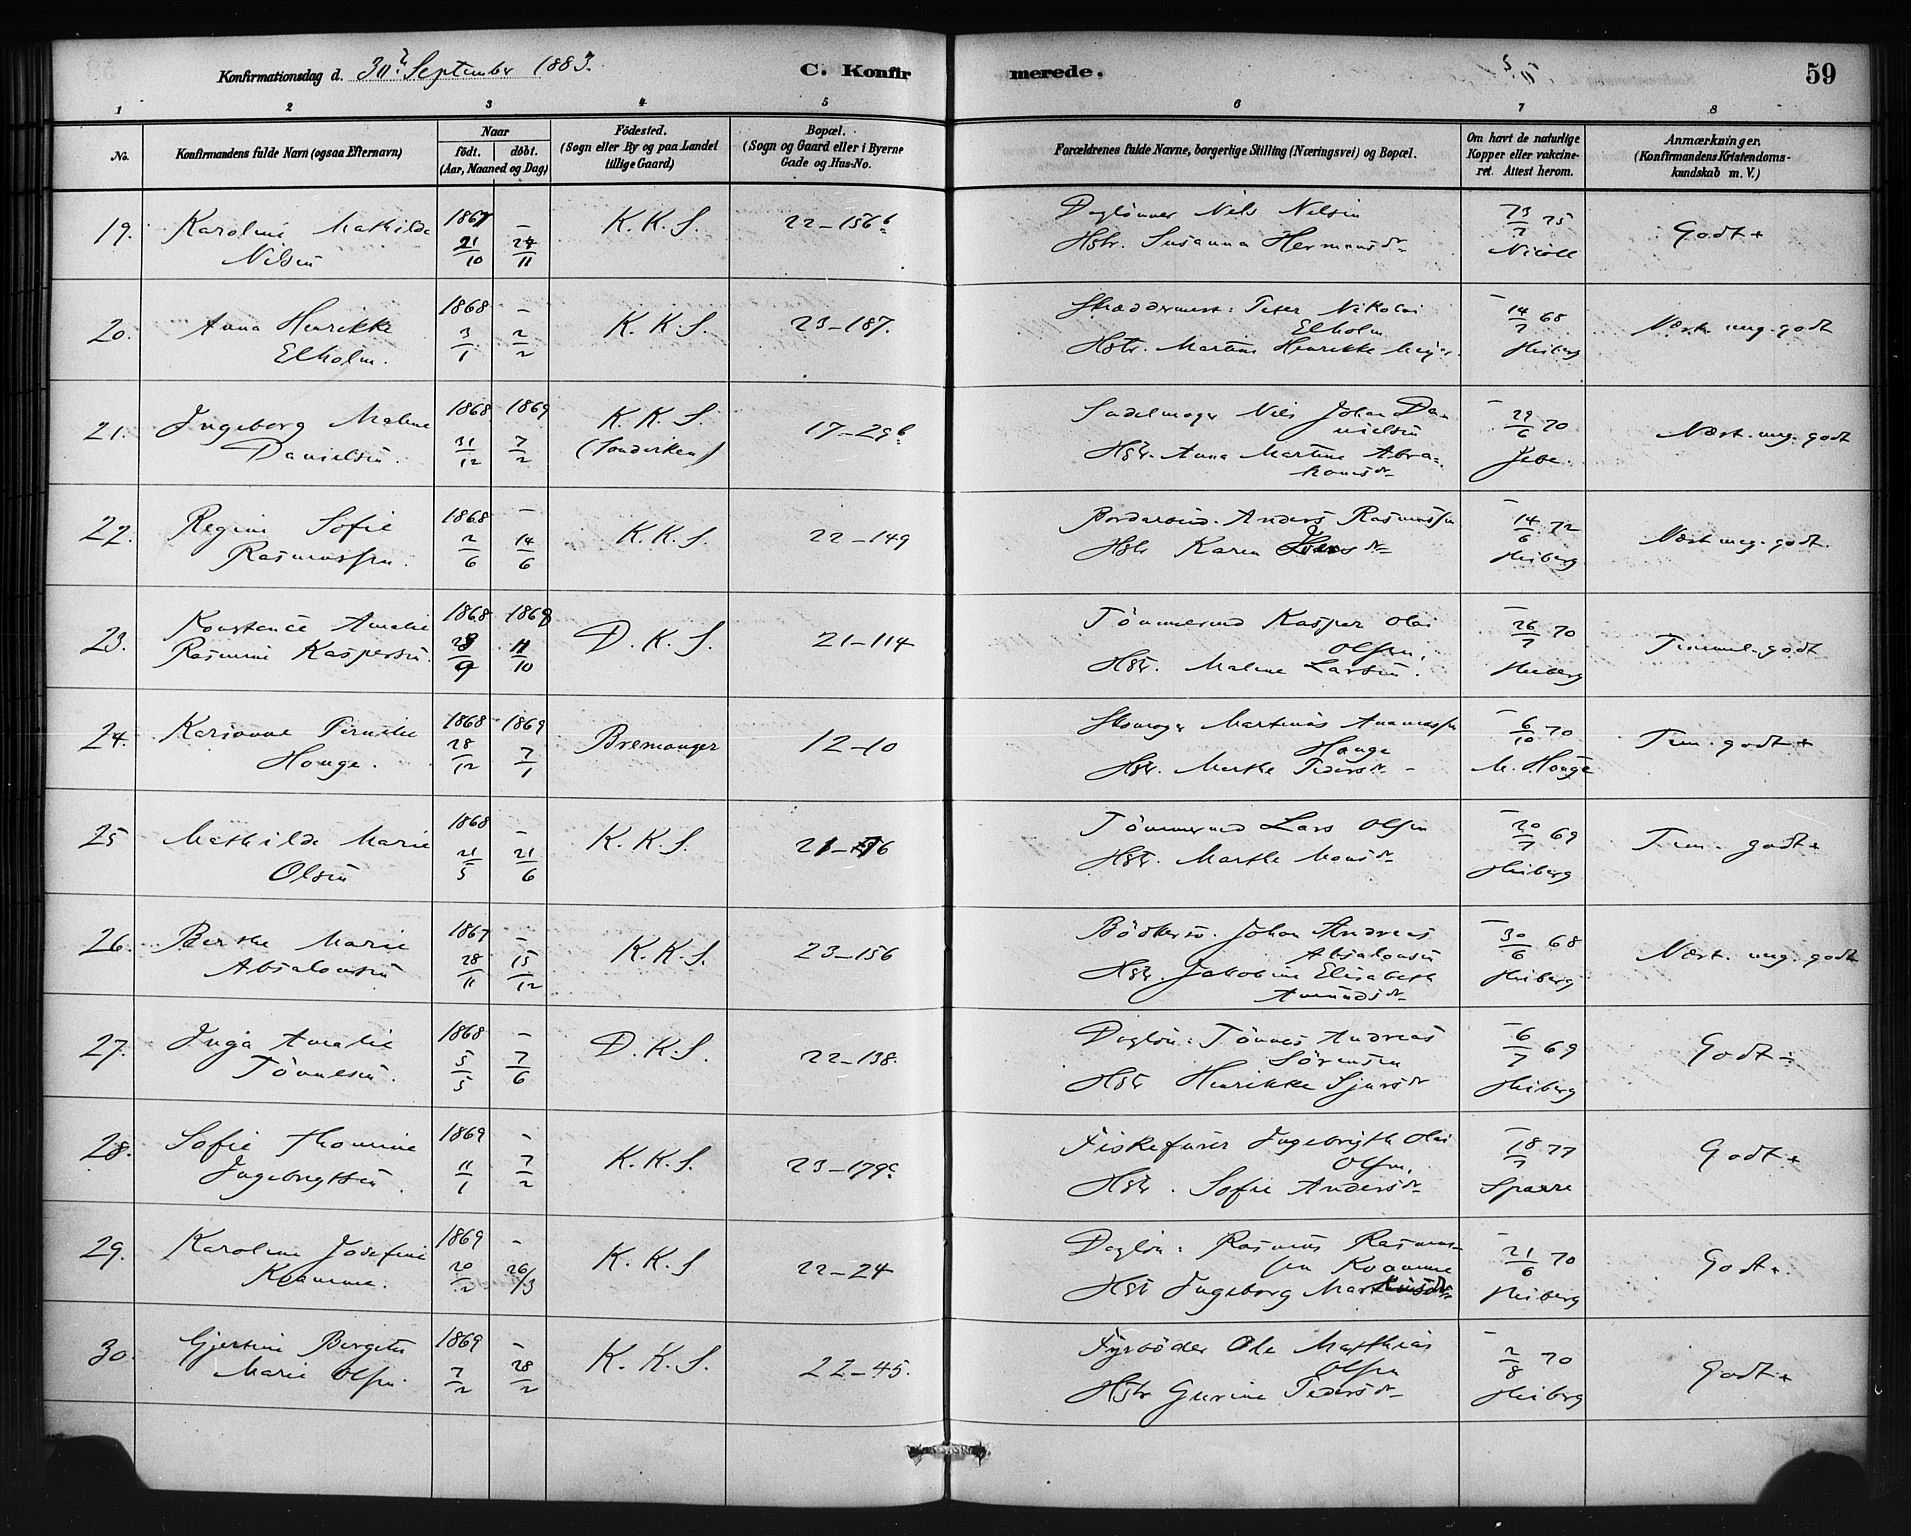 Konfirmationsdag d. 30te September 1883.
C. Konfirmerede.
59
1 2 3 4 5 6 7 8
No.
Konfirmandens fulde Navn (ogsaa Efternavn)
Naar
födt. döbt.
(Aar, Maaned og Dag)
Födested.
(Sogn eller By og paa Landet
tillige Gaard)
Bopæl.
(Sogn og Gaard eller i Byerne
Gade og Hus-No.
Forældrenes fulde Navne, borgerlige Stilling (Næringsvei) og Bopæl.
Om havt de naturlige
Kopper eller vakcine-
ret. Attest herom.
Anmærkninger,
(Konfirmandens Kristendoms-
kundskab m. V.)
19. Karoline Mathilde 1867 – K.K.S. 22–156b Daglönner Nils Nilsen 13/7 75 Godt+
Nilsen 21/10 24/11 Hstr. Susanna Hermansdr Nicoll
20. Anna Henrikke 1868 – K.K.S. 23–187. Skræddermest: Peter Nikolai 14/7 68 Næst. meg. godt
Elholm. 3/1 2/2 Elholm
Hstr. Martine Henrikke Heiberg
21. Ingeborg Malene 1868 1869 K.K.S. 17–29b Sadelmager Nils Johan Da- 29/6 70 Næst. meg. godt
Danielsen. 31/12 7/2 (Sønderken) nielsen
Hstr. Anna Martine Abra- Jebe.
hamsdr
22. Regine Sofie 1868 – K.K.S. 22–149 Anders Rasmussen 14/6 72 Næst. meg. godt.
Rasmussen. 2/6 14/6 Hstr Karen Heiberg
23. Konstance Amalie 1868 1868 D.K.S. 21–114 Tömmermd Kasper Olai 26/7 70 Temmel. godt
Rasmine Kaspersen. 23/9 11/10 Olsen,
Hstr. Malene Larsen. Heiberg
24. Karianne Pernille 1868 1869 Bremanger 12–10 Skomager Martinus 6/10 70 Tem. godt+
Hauge. 28/12 7/1 Hauge
Hstr. Marthe Pedersdr – M. Hauge
25 Mathilde Marie 1868 – K.K.S. Tömmermd Lars Olsen 20/7 69 Tem. godt+
Olsen 21/5 21/6 Hstr. Marthe Monsdr Heiberg
26. Berthe Marie 1867 – K.K.S. 23–156 Bödkersv. Johan Andreas 30/6 68 Næst. meg. godt
Absalonsen 28/11 15/12 Absalonsen
Hstr. Jakobine Elisabeth Heiberg
Amundsdr
27. Inga Amalie 1868 – D.K.S. 22–138. Daglön: Tönnes Andreas 6/7 69 Godt÷
Tönnesen. 5/5 7/6 Sörensen
Hstr Henrikke Sjursdr Heiberg
28. Sofie Thomine 1869 – K.K.S. 23–179c Fiskefører Ingebrigth Olai 18/7 77 Godt+
Ingebrigtsen. 11/1 7/2 Olsen,
Hstr. Sofie Andersdr Sparre
29. Karoline Josefine 1869 – K.K.S 22–24 Daglön: Rasmus Rasmus- 21/6 70 Godt+
Kvamme. 20/2 26/3 sen Kvamme
Hstr Ingeborg Heiberg
30. Gjertine Bergitte 1869 – K.K.S. 22–45. Fyrböder Ole Matthias 2/8 70 Godt+
Marie Olsen. 7/2 28/2 Olsen
Hstr Gurine Pedersdr Heiberg